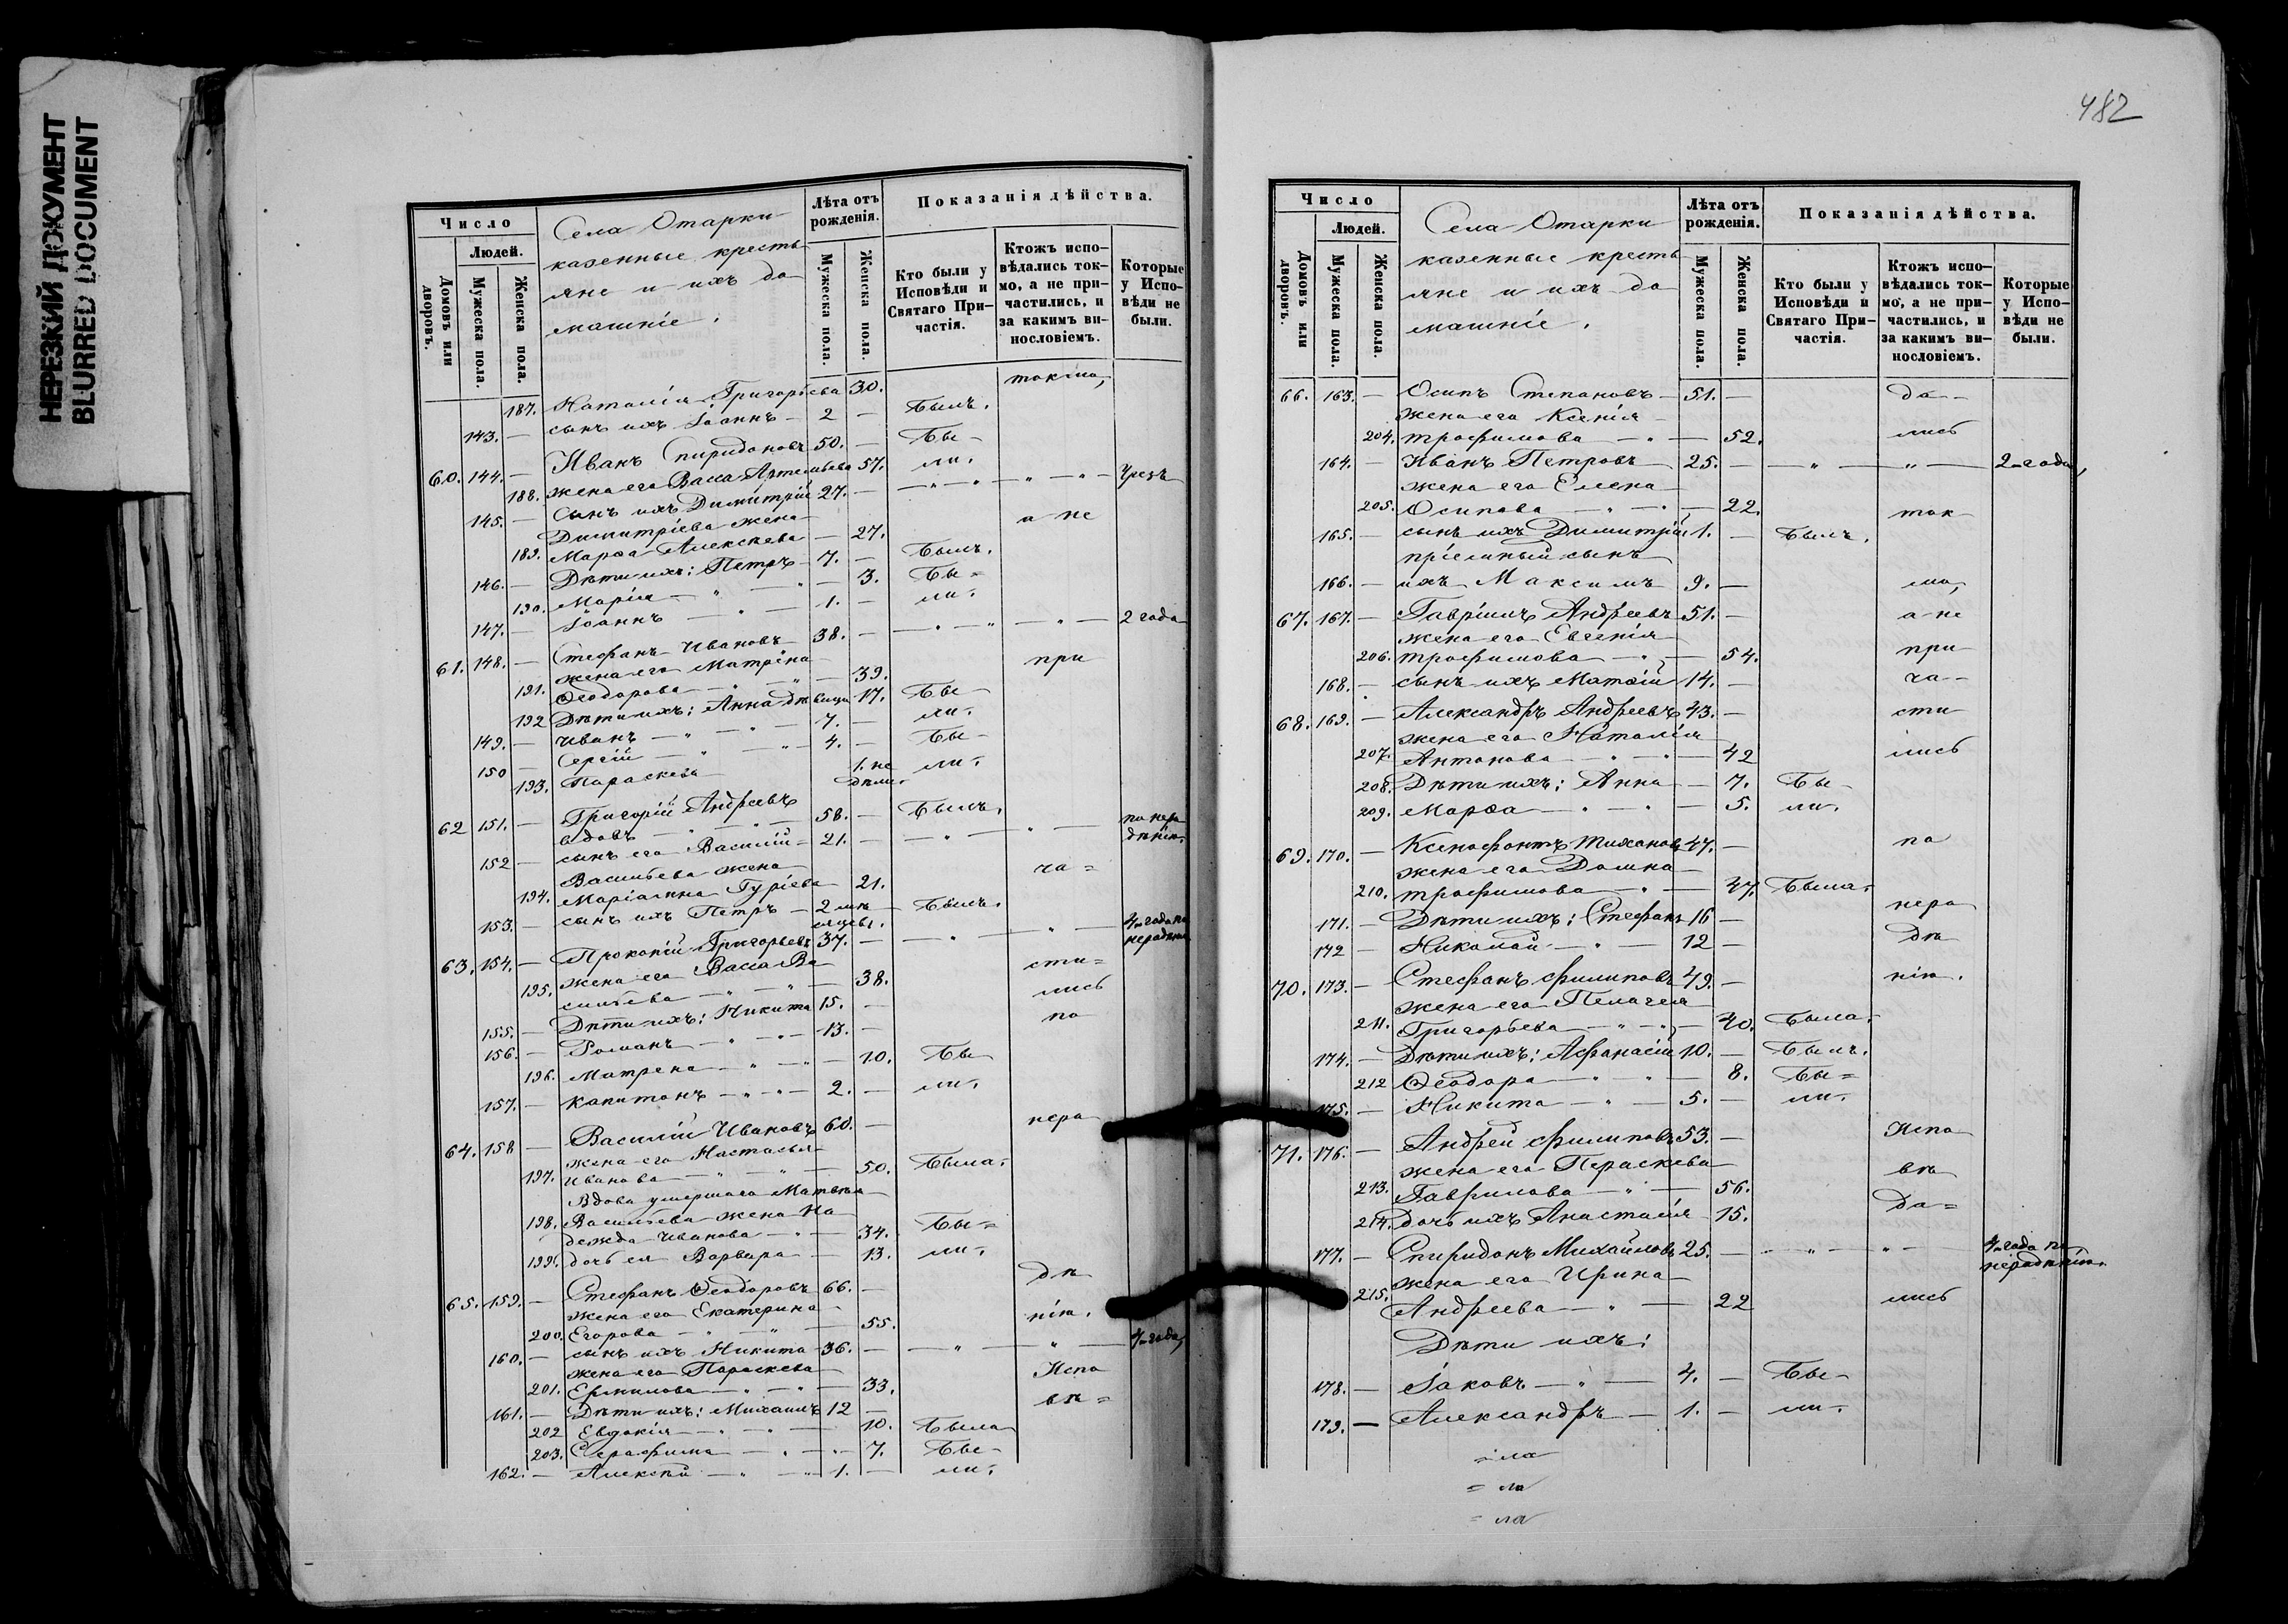 НЕРЕЗКИЙ ДОКУМЕНТ
BLURRED DOCUMENT
Число
Людей.
Домовъ или дворовъ.
Мужеска пола.
Женска пола.
Села Отарки
казенные кресть
яне и ихъ до
машніе.
Лѣта отъ рожденія.
Мужеска пола.
Женска пола.
Показанія дѣйства.
Кто были у Исповѣди и Святаго При-
частія.
Ктожъ испо-
вѣдались ток-
мо, а не при-
частились, и
за какимъ ви-
нословіемъ.
Которые
у Испо-
вѣди не
были.
187. Наталія Григорьева 30. токмо,
143. — сынъ ихъ Іоаннъ — 2 — Былъ.
60. 144. — Иванъ Спиридоновъ 50. — Бы-
188. жена его Васса Артемьева 57. ли.
145. — Сынъ ихъ Димитрій 27. — — " — " — Чрезъ
Димитріева жена а не
189. Марѳа Алексѣева — 27.
146. — Дѣти ихъ: Петръ — 7. — Былъ.
190. Марія — " — 3. Бы=
147. — Іоаннъ — 1. — ли.
61. 148. — Стефанъ Ивановъ 38. — — " — " — 2 года
жена его Матрена при
191. Ѳеодорова — " — 39.
192 Дѣти ихъ: Анна дѣвица 17. Бы-
149. — Иванъ — " — 7. — ли.
150 — Сергій — " — 4. — Бы-
193. Параскева 1. не ли.
дѣли.
62 151. — Григорій Андреевъ
вдовъ — " — 58. — Былъ.
152 — сынъ его Василій — 21. — — " — " — по нера
дѣнію.
Васильева жена ча=
194. Маріамна Гуріева 21.
153. — сынъ ихъ Петръ — 2 мѣ Былъ.
сяцевъ.
63. 154. — Прокопій Григорьевъ 37. — — " — " — 4 года по
нерадѣнію
жена его Васса Ва сти=
195. сильева — " — 38. лись
155. — Дѣти ихъ: Никита 15. — по
156. — Романъ — " — 13. —
196. Матрена — " — 10. Бы
157. — Капитонъ — " — 2. — ли.
64. 158 — Василій Ивановъ 60. — нера
жена его Настасья
197. Иванова — " — 50. Была.
Вдова умершаго Матвѣя
198. Васильева жена На
дежда Иванова — " — 34. Бы=
199. дочь ея Варвара — 13. ли.
65. 159. — Стефанъ Ѳеодоровъ 66. — дѣ
жена его Екатерина нію.
200. Егорова — " — 55.
160. — сынъ ихъ Никита 36. — — " — " — 4 года,
жена его Параскева Испо
201. Ермилова — " — 33. вѣ=
161. — Дѣти ихъ: Михаилъ 12 —
202 Евдокія — " — 10. Была
203. Серафима — " — 7. Бы-
162. — Алексѣй — " — 1. — ли.
482
Число
Людей.
Домовъ или дворовъ.
Мужеска пола.
Женска пола.
Села Отарки
казенные кресть
яне и ихъ до
машніе.
Лѣта отъ рожденія.
Мужеска пола.
Женска пола.
Показанія дѣйства.
Кто были у Исповѣди и Святаго При-
частія.
Ктожъ испо-
вѣдались ток-
мо, а не при-
частились, и
за какимъ ви-
нословіемъ.
Которые
у Испо-
вѣди не
были.
66. 163. — Осипъ Степановъ — 51. — да-
жена его Ксенія
204. Трофимова — " — 52. лись
164. — Иванъ Петровъ 25. — — " — " — 2 года,
жена его Елена
205. Осипова — " — 22. ток
165. — сынъ ихъ Димитрій 1. — Былъ.
пріемный сынъ
166. — ихъ Максимъ 9. — мо,
67. 167. — Гавріилъ Андреевъ 51. — а не
жена его Евгенія
206. Трофимова — " — 54. при
168. — сынъ ихъ Матѳій 14. — ча-
68. 169. — Александръ Андреевъ 43. — сти
жена его Наталія
207. Антонова — " — 42 лись
208. Дѣти ихъ: Анна — 7. Бы-
209. Марѳа — " — 5. ли.
69. 170. — Ксенофонтъ Тихоновъ 47. — по
жена его Домна
210. Трофимова — " — 37. Была.
171. — Дѣти ихъ: Стефанъ 16 — нера
172 — Николай — " — 12 — дѣ
70. 173. — Стефанъ Филиповъ 49. — нію.
жена его Пелагея
211. Григорьева — " — 40. Была.
174. — Дѣти ихъ: Афанасій 10. — Былъ.
212 Ѳеодора — " — 8. Бы=
175. — Никита — " — 5. — ли.
71. 176. — Андрей Филиповъ 53. — Испо
жена его Параскева вѣ
213. Гаврилова — " — 56.
214. дочь ихъ Анастасія 15. да=
177. — Спиридонъ Михайловъ 25. — — " — " — 4 года по
нерадѣнію.
жена его Ирина
215. Андреева — " — 22 лись
Дѣти ихъ:
178. — Іаковъ — " — 4. — Бы-
179. — Александръ — 1. — ли.
= ла
= ла
= ла